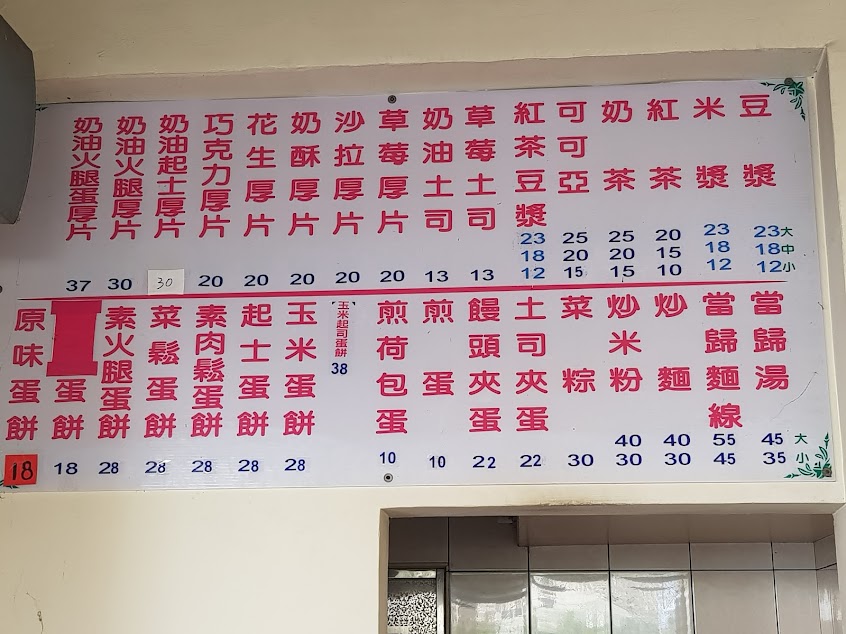 豆漿
23大
18中
12小
米漿
23
18
12
紅茶
20
15
10
奶茶
25
20
15
可可亞
25
20
15
紅茶豆漿
23
18
12
草莓土司
13
奶油土司
13
草莓厚片
20
沙拉厚片
20
奶酥厚片
20
花生厚片
20
巧克力厚片
20
奶油起士厚片
30
奶油火腿厚片
30
奶油火腿蛋厚片
37
當歸湯
45大
35小
當歸麵線
55
45
炒麵
40
30
炒米粉
40
30
菜粽
30
土司夾蛋
22
饅頭夾蛋
22
煎蛋
10
煎荷包蛋
10
玉米起司蛋餅
38
玉米蛋餅
28
起士蛋餅
28
素肉鬆蛋餅
28
菜鬆蛋餅
28
素火腿蛋餅
28
蛋餅
18
原味蛋餅
18